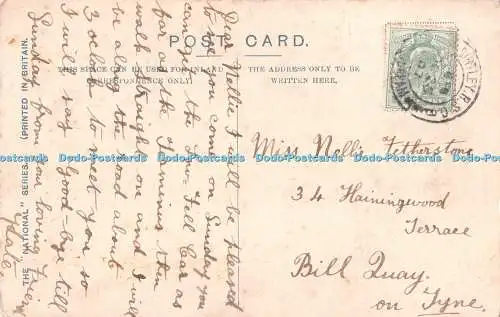 POST CARD.
THIS SPACE CAN BE USED FOR INLAND
CORRESPONDENCE ONLY.
THE ADDRESS ONLY TO BE
WRITTEN HERE.
THE "NATIONAL" SERIES. (PRINTED IN BRITAIN.
Dear Nellie I will be pleased
to see you come on Sunday you
can get the Low-Fell Car as
far as the Terminus then
walk through on and I will
be along the road about
3 oclock to meet you so
I will say Good-bye till
Sunday from your loving Friend
Kate
Miss Nellie Fetherstone
34 Hainingwood
Terrace
Bill Quay.
on Tyne.
Dodo-Postcards Dodo-Postcards Dodo-Postcards Dodo-Postcards Dodo-Postcards